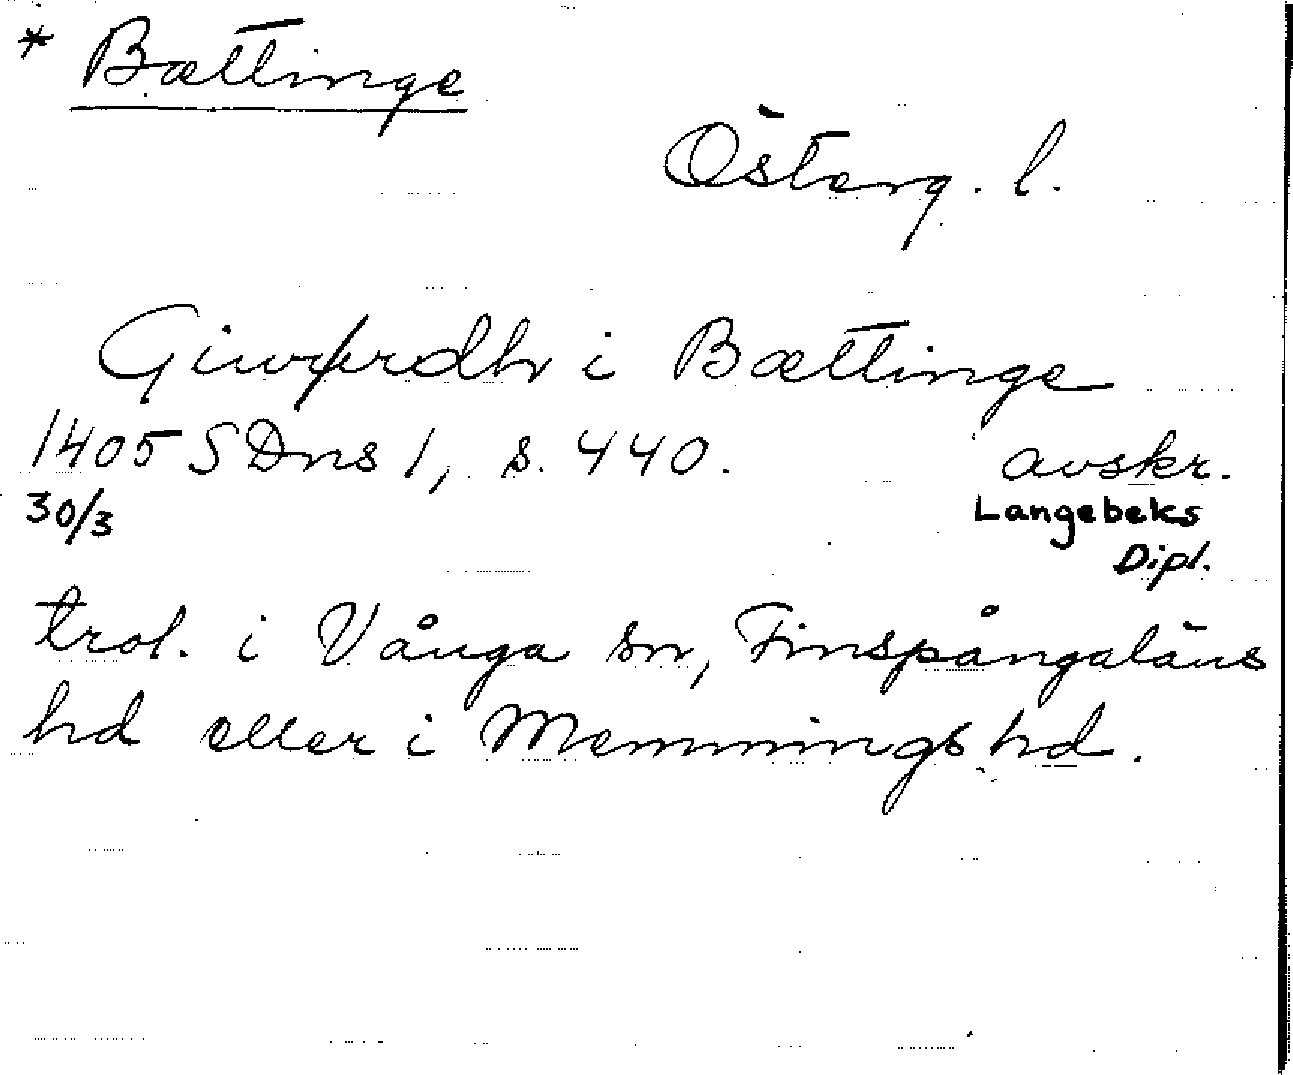 * Bættinge
Österg. l.
Giurførdh i Bættinge
1405 SDns 1, s. 440. avskr.
30/3 Langebeks
Dipl.
trol. i Vånga sn, Finspångaläns
hd eller i Memmings hd.